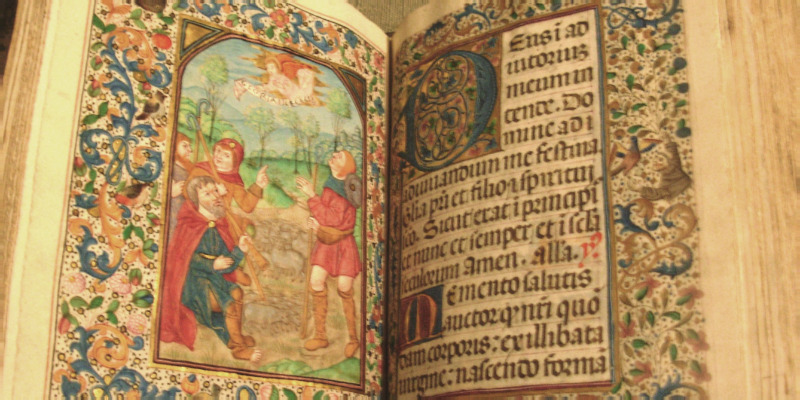 Deus i ad
iutorium
meum in
tende. Do
mine ad i
adiuuandum me festina
glia pri et filio i spiritui
Sicut erat i principi
et nunc et semper et i secla
seculorum Amen. alla. 
Memento salutis
auctor qd nri quo
dam corporis: ex illibata
uirgine: nascendo forma